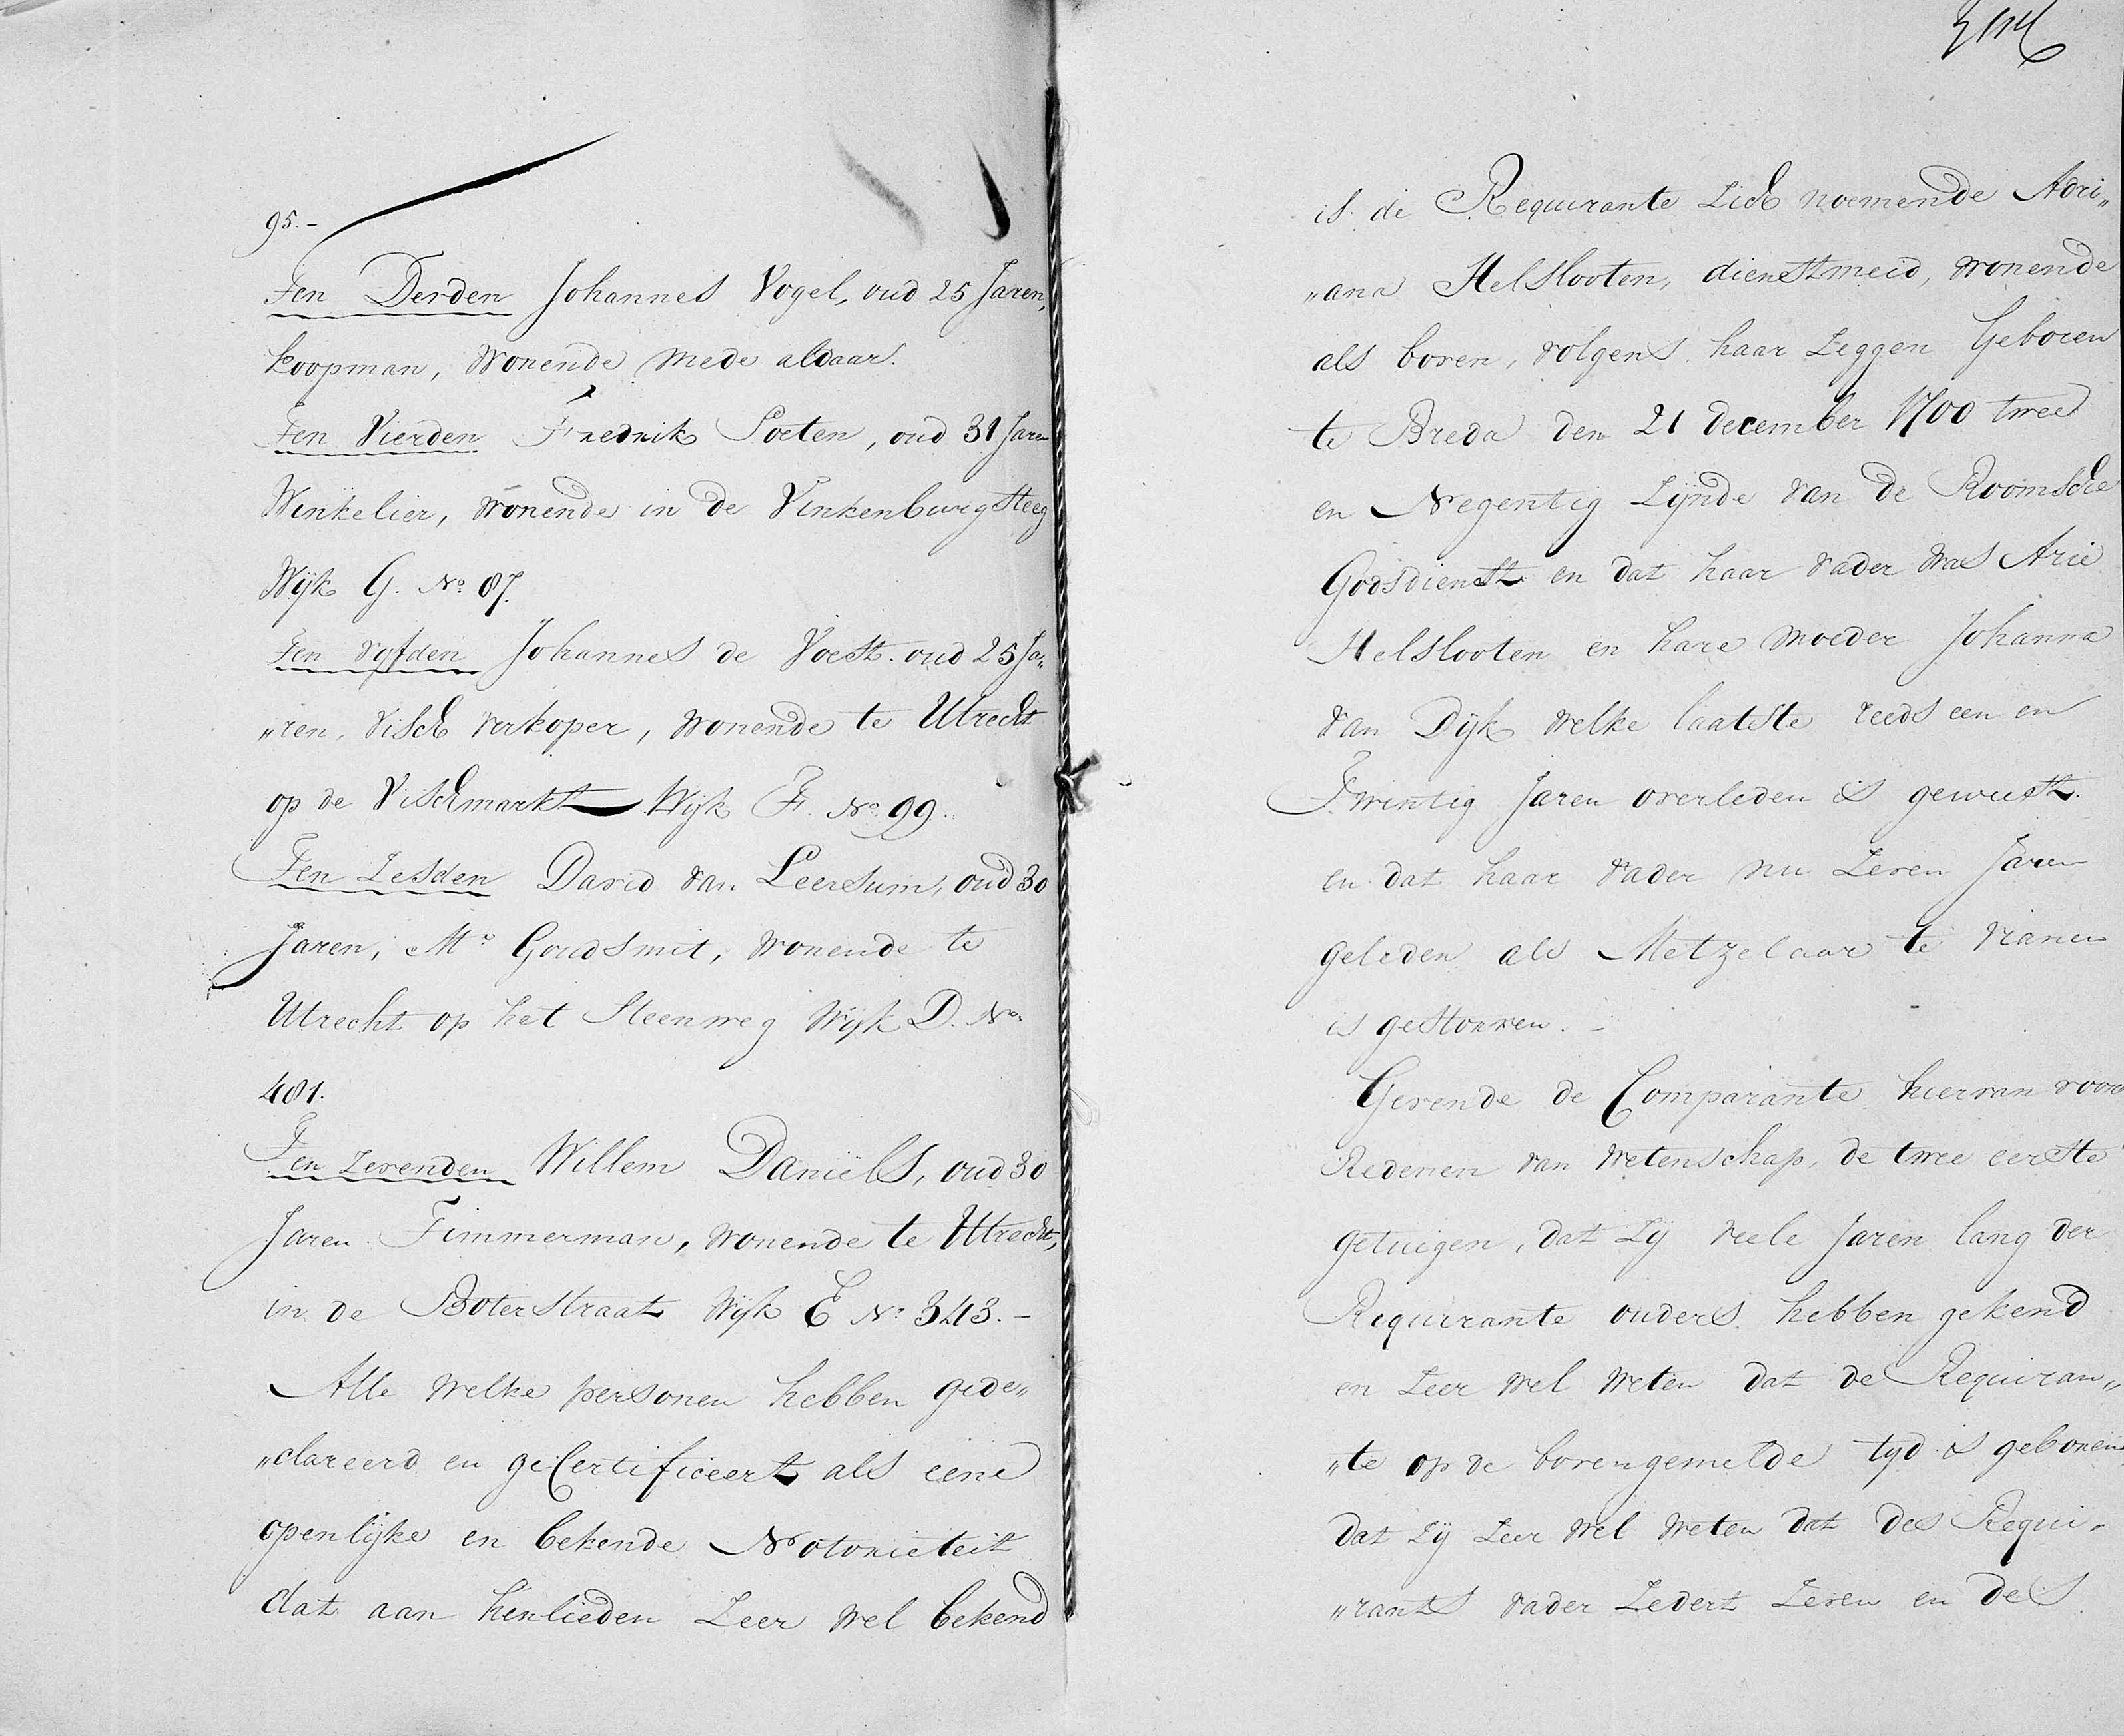 95.-
Ten Derden Johannes Vogel, oud 25 Jaren,
koopman, wonende mede aldaar.
Ten Vierden Fredrik Soeten, oud 31 Jaren
Winkelier, wonende in de Vinkenburgsteeg
Wijk G. No. 87.
Ten vyfden Johannes de Voest. oud 25 Ja„
„ren, visch verkoper, wonende te Utrecht
op de Vischmarkt Wijk F. No. 99.
Ten Zesden David van Leersum, oud 30
Jaren, Mr. Goudsmit, wonende te
Utrecht op het Steenweg Wijk D. No.
481.
Ten zevenden Willem Daniëls, oud 30
Jaren Timmerman, wonende te Utrecht,
in de Boterstraat Wijk E No. 343.-
Alle welke personen hebben gede„
„clareerd en geCertificeert als eene
openlijke en bekende Notorieteit
dat aan henlieden Zeer wel bekend
is de Requirante Zich noemende Adri„
„ana Helslooten, dienstmeid, wonende
als boven, volgens haar Zeggen Geboren
te Breda den 21 december 1700 twee
en Negentig Zijnde van de Roomsche
Godsdienst en dat haar vader was Arie
Helslooten en hare moeder Johanna
van Dijk welke laatste reeds een en
Twintig Jaren overleden is geweest
en dat haar vader nu Zeven Jaren
geleden als Metzelaar te vianen
is gestorven.-
Gevende de Comparante hiervan voor
Redenen van wetenschap, de twee eerste
getuigen, dat Zij veele Jaren lang der
Requirante ouders hebben gekend
en Zeer wel weten dat de Requiran„
„te op de bovengemelde tyd is geboren
dat Zij Zeer wel weten dat des Requi„
„rants vader Zedert Zeven en des